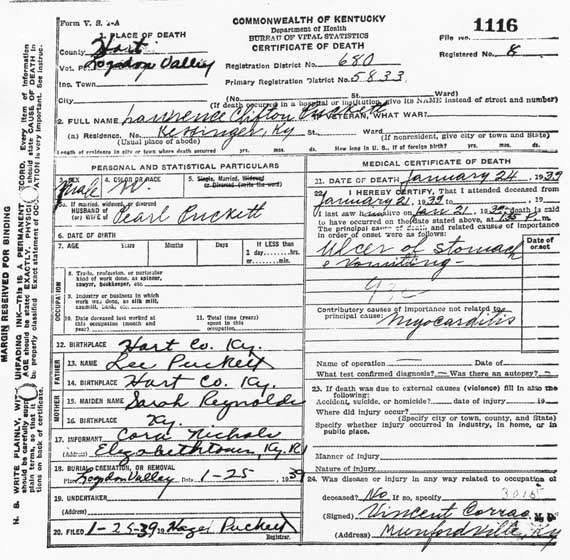 Form V. S. 1-A
COMMONWEALTH OF KENTUCKY
Department of Health
BUREAU OF VITAL STATISTICS
CERTIFICATE OF DEATH
1116
File No.
Registered No. 8
1. PLACE OF DEATH
County Hart
Vot. Pct. Logsdon Valley
Inc. Town
City
Registration District No. 680
Primary Registration District No. 5833
(No. St. Ward)
(If death occurred in a hospital or institution, give its NAME instead of street and number)
2. FULL NAME Lawrence Clifton Puckett
VETERAN, WHAT WAR?
(a) Residence. No. Kessinger, Ky St. Ward
(Usual place of abode) (If nonresident, give city or town and State)
Length of residence in city or town where death occurred yrs. mos. ds. How long in U. S., if of foreign birth? yrs. mos. ds.
PERSONAL AND STATISTICAL PARTICULARS
3. SEX Male
4. COLOR OR RACE W.
5. Single, Married, Widowed or Divorced (write the word)
5a. If married, widowed, or divorced
HUSBAND of
(or) WIFE of Pearl Puckett
6. DATE OF BIRTH
7. AGE Years Months Days If LESS than
1 day, hrs.
or min.
OCCUPATION
8. Trade, profession, or particular
kind of work done, as spinner,
sawyer, bookkeeper, etc.
9. Industry or business in which
work was done, as silk mill,
sawmill, bank, etc.
10. Date deceased last worked at
this occupation (month and
year)
11. Total time (years)
spent in this
occupation
12. BIRTHPLACE Hart Co. Ky.
FATHER
13. NAME Lee Puckett
14. BIRTHPLACE Hart Co. Ky.
MOTHER
15. MAIDEN NAME Sarah Reynolds
16. BIRTHPLACE Ky.
17. INFORMANT Cora Nichols
(Address) Elizabethtown, Ky. R1
18. BURIAL, CREMATION, OR REMOVAL
Place Logsdon Valley Date 1-25 1939
19. UNDERTAKER
(Address)
20. FILED 1-25-39 Hazel Puckett
Registrar.
MEDICAL CERTIFICATE OF DEATH
21. DATE OF DEATH January 24 1939
22. I HEREBY CERTIFY, That I attended deceased from
January 21, 1939 to 19
I last saw h alive on Jan 21, 1939, death is said
to have occurred on the date stated above, at 1:35 P. m.
The principal cause of death and related causes of importance
in order of onset were as follows:
Date of onset
Ulcer of Stomach
& Vomiting
Contributory causes of importance not related to
principal cause:
Myocarditis
Name of operation Date of
What test confirmed diagnosis? Was there an autopsy?
23. If death was due to external causes (violence) fill in also the
following:
Accident, suicide, or homicide? date of injury 19
Where did injury occur?
(Specify city or town, county, and State)
Specify whether injury occurred in industry, in home, or in
public place.
Manner of injury
Nature of injury
24. Was disease or injury in any way related to occupation of
deceased? No If so, specify
(Signed) Vincent Corrao M. D.
(Address) Munfordville, Ky
MARGIN RESERVED FOR BINDING